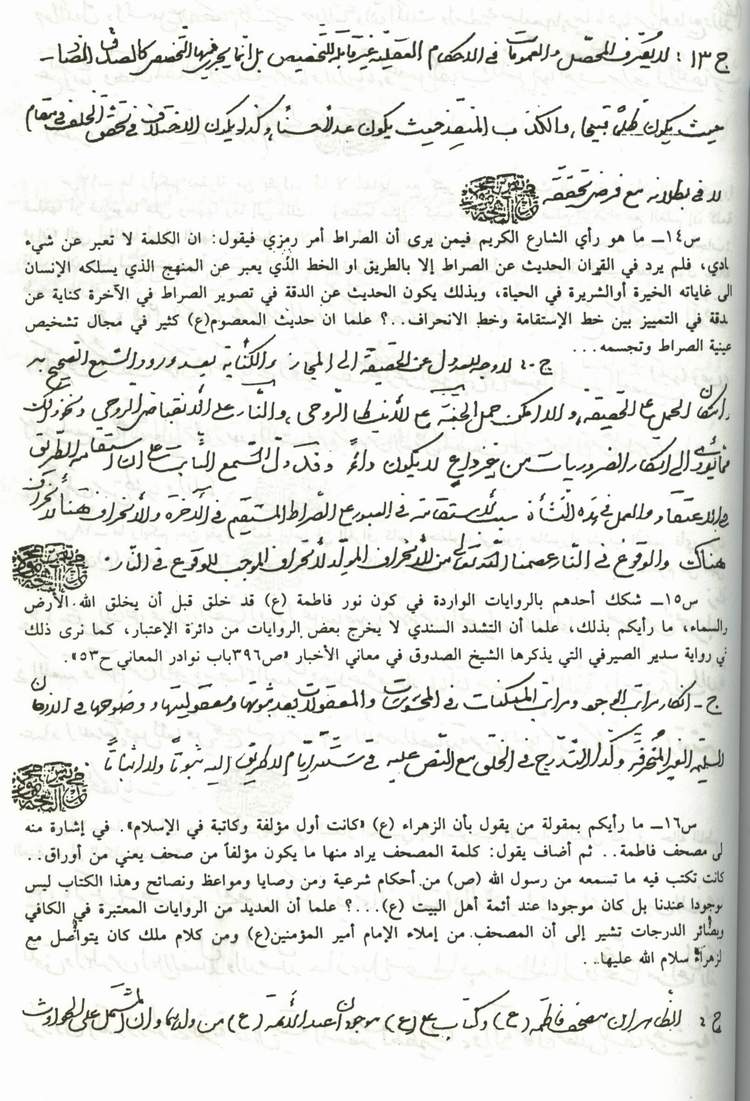 ج ١٣: لا يعرف المحصل والعمومات في الاحكام العقلية غير قابلة للتخصيص بل انما يجري فيها التخصص كالصدق الضار
حيث يكون ظلماً قبيحاً، والكذب المنقذ حيث يكون عدلاً حسناً وكذا يكون الاختلاف في تحقق الخلف في مقام
لا في بطلانه مع فرض تحققه
س١٤ــ ما هو رأي الشارع الكريم فيمن يرى أن الصراط أمر رمزي فيقول: ان الكلمة لا تعبر عن شيء
بادي، فلم يرد في القرآن الحديث عن الصراط إلا بالطريق او الخط الذي يعبر عن المنهج الذي يسلكه الإنسان
الى غاياته الخيرة أوالشريرة في الحياة، وبذلك يكون الحديث عن الدقة في تصوير الصراط في الآخرة كناية عن
لدقة في التمييز بين خط الإستقامة وخط الانحراف..؟ علما ان حديث المعصوم(ع) كثير في مجال تشخيص
عينية الصراط وتجسمه...
ج - لا وجه للعدول عن الحقيقة الى المجاز والكناية بعد ورود السمع الصحيح به
وامكان الحمل على الحقيقة، والا امكن حمل الجنة على الانبساط الروحي، والنار على الانقباض الروحي ونحو ذلك
مما يؤدي الى انكار الضروريات من غير داع لا يكون داء وقد دل السمع الثابت على ان الاستقامة الطريق
في الاعتقاد والعمل في هذه النشأة سبب للاستقامة في العبور على الصراط المستقيم في الآخرة والانحراف هنا لانحراف
هناك والوقوع في النار عصمنا الله تعالى من الانحراف المولد لانحراف الموجب للوقوع في النار.
س١٥ــ شكك أحدهم بالروايات الواردة في كون نور فاطمة (ع) قد خلق قبل أن يخلق الله الأرض
والسماء، ما رأيكم بذلك، علما أن التشدد السندي لا يخرج بعض الروايات من دائرة الإعتبار، كما نرى ذلك
في رواية سدير الصيرفي التي يذكرها الشيخ الصدوق في معاني الأخبار «ص٣٩٦باب نوادر المعاني ح٥٣».
ج - انكار مراتب الوجود ومراتب الممكنات في المجردات والمعقولات بعد ثبوتها ومعقوليتها ووضوحها في الاذهان
السليمة الغير المنحرفة وكذا التدرج في الخلق مع النص عليه في ستة ايام لا طريق اليه ثبوتاً ولا اثباتاً
س١٦ــ ما رأيكم بمقولة من يقول بأن الزهراء (ع) «كانت أول مؤلفة وكاتبة في الإسلام». في إشارة منه
لى مصحف فاطمة.. ثم أضاف يقول: كلمة المصحف يراد منها ما يكون مؤلفاً من صحف يعني من أوراق..
كانت تكتب فيه ما تسمعه من رسول الله (ص) من أحكام شرعية ومن وصايا ومواعظ ونصائح وهذا الكتاب ليس
موجودا عندنا بل كان موجودا عند أئمة أهل البيت (ع)...؟ علما أن العديد من الروايات المعتبرة في الكافي
وبصائر الدرجات تشير إلى أن المصحف من إملاء الإمام أمير المؤمنين(ع) ومن كلام ملك كان يتواصل مع
لزهراء سلام الله عليها..
ج: الظاهر ان مصحف فاطمة (ع) وكتاب علي (ع) موجودان عند الأئمة (ع) من ولدهما وان المشتمل على الحوادث